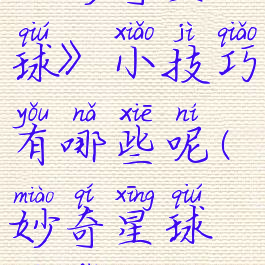 qiú xiǎo jì qiǎo
球》小技巧
yǒu nǎ xiē ní
有哪些呢(
miào qí xīng qiú
妙奇星球